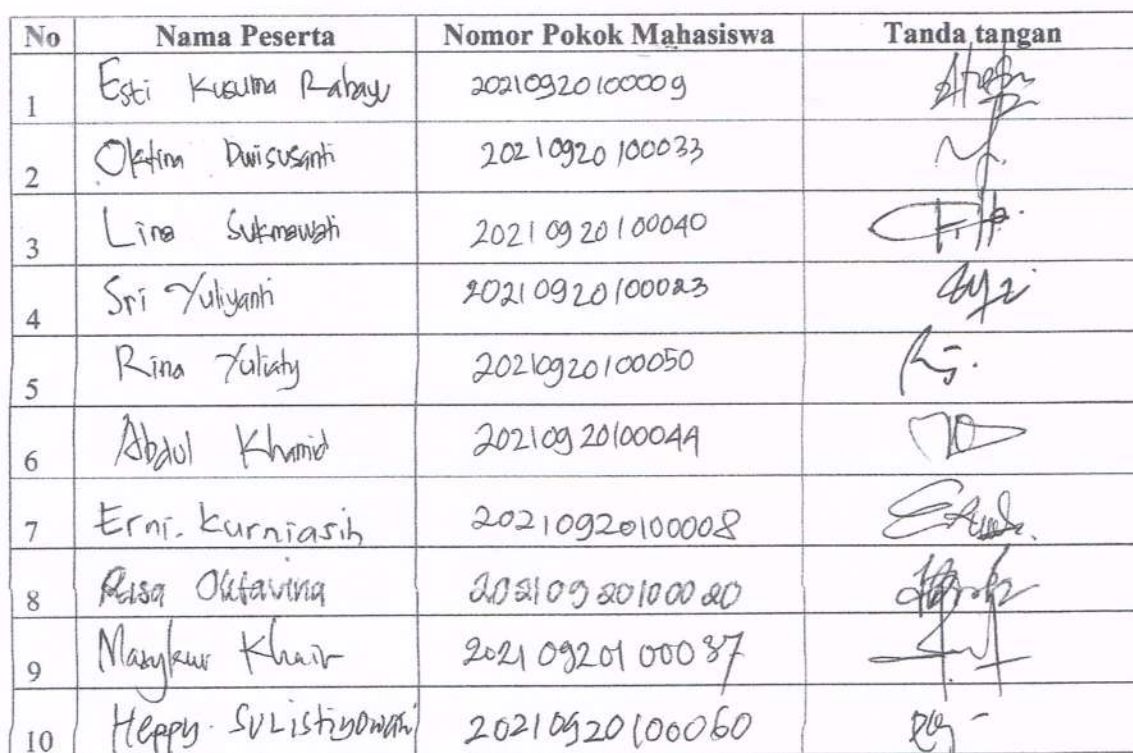 No Nama Peserta Nomor Pokok Mahasiswa Tanda tangan
1 Esti Kusuma Rahayu 20210920100009
2 Oktina Dwisusanti 20210920100033
3 Lina Sukmawati 20210920100040
4 Sri Yuliyanti 20210920100023
5 Rina Yuliaty 20210920100050
6 Abdul Khamid 20210920100044
7 Erni. Kurniasih 20210920100008
8 Risa Oktavina 20210920100020
9 Masykur Khair 20210920100037
10 Heppy. Sulistiyowati 20210920100060